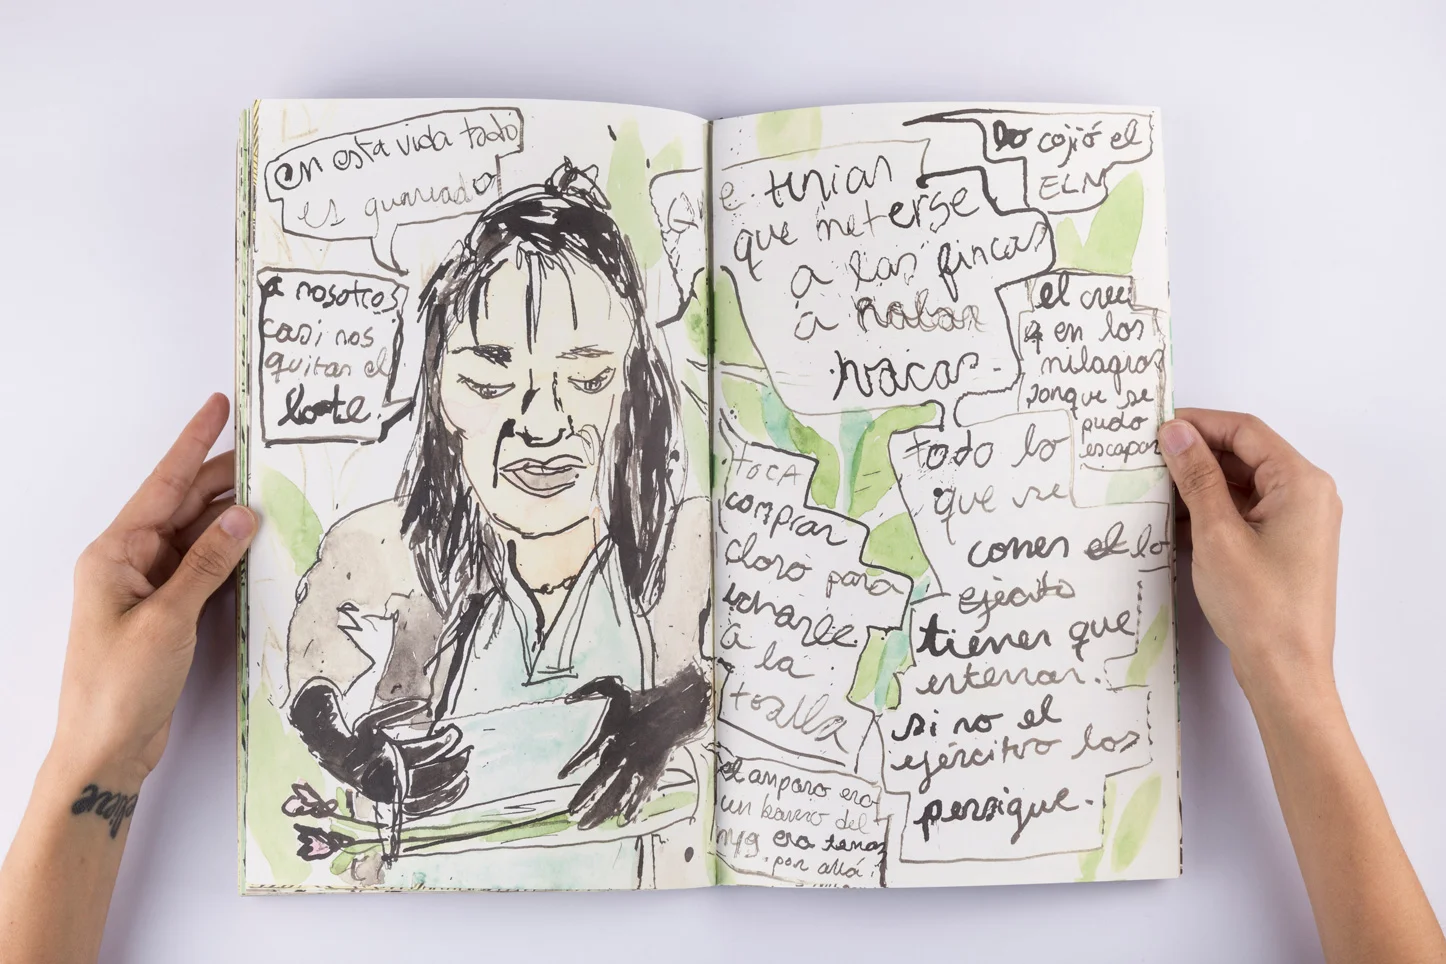 en esta vida todo
es guerreado
a nosotros
casi nos
quitan el
lote.
Que tenian
que meterse
a las fincas
a robar
vacas.
lo cojió el
ELN
el cree
q en los
milagros
porque se
pudo
escapar
toca
comprar
cloro para
echarle
a la
toalla
todo lo
que se
comen el lo
ejécito
tienen que
enterrar.
si no el
ejército los
persigue.
el amparo era
un barrio del
m19 era tenaz
por allá
believe